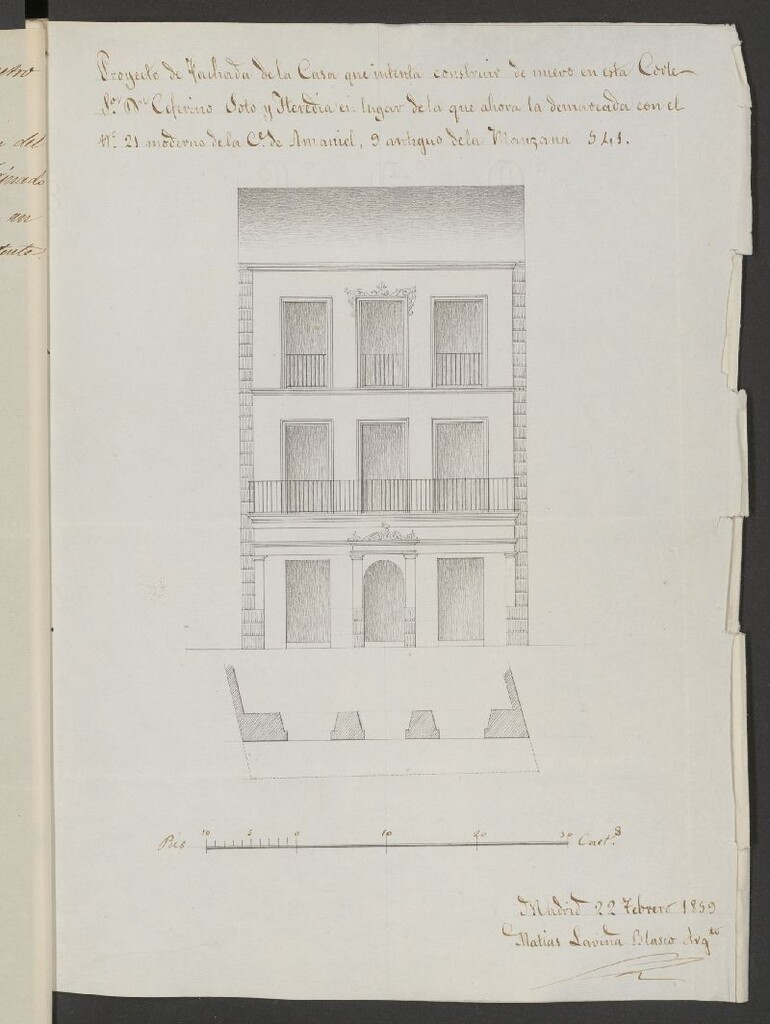 Proyecto de Fachada de la Casa que intenta construir de nuevo en esta Corte
Sor. Dn Ceferino Soto y Heredia en lugar de la que ahora la demarcada con el
Nº. 21 moderno de la C.e de Amaniel, 9 antiguo de la Manzana 541.
del
an
10 5 0 10 20 30
Pies Cast.s
Madrid 22 Febrero 1859
Matias Laviña Blasco Arqto